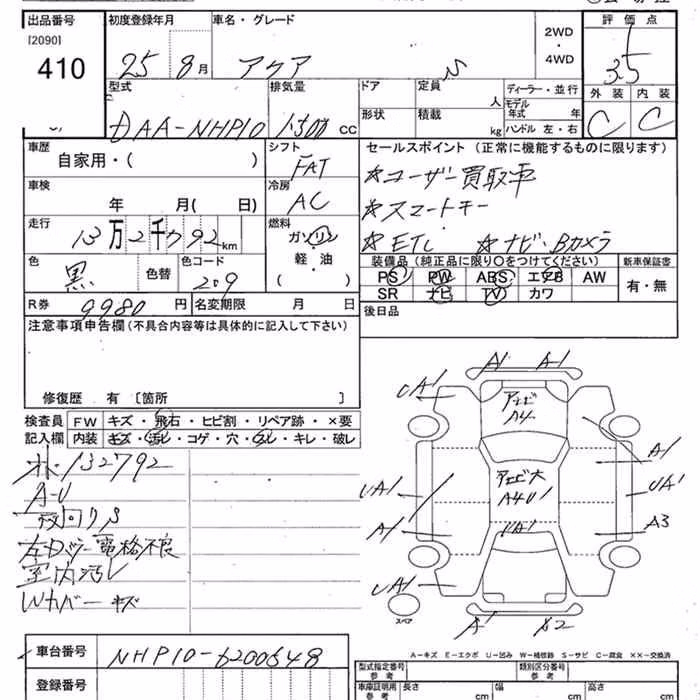 出品番号 [2090] 410
初度登録年月 25 8月
車名・グレード アクア
2WD・4WD
評価点 3.5
外装 C 内装 C
型式 DAA-NHP10
排気量 1500 CC
ドア
形状
定員 人
積載 kg
ディーラー・並行
モデル年式 年
ハンドル 左・右
車歴 自家用・( )
シフト FAT
冷房 AC
セールスポイント (正常に機能するものに限ります)
☆ユーザー買取車
☆スマートキー
☆ETC ☆ナビ・Bカメラ
車検 年 月( 日)
走行 13万2千792km
燃料 ガソリン 軽・油 ( )
色 黒 色替
色コード 209
装備品(純正品に限り○をつけてください)
PS PW ABS エアB AW
SR ナビ TV カワ
新車保証書 有・無
R券 9980円
名変期限 月 日
後日品
注意事項申告欄(不具合内容等は具体的に記入して下さい)
修復歴 有 〔箇所 〕
検査員記入欄
FW キズ・飛石・ヒビ割・リペア跡・×要
内装 キズ・汚レ・コゲ・穴・スレ・キレ・破レ
132792
A-U
左Dミラー電格不良
室内汚レ
Wカバーキズ
A1 A-1
UA1
アエビ A4
A1
UA1
アエビ大 A4U1
UA1
A1
A3
UA1
UA1
A1
スペア
A-キズ E-エクボ U-凹み W-補修跡 S-サビ C-腐食 ××-交換済
車台番号 NHP10-6200648
登録番号
型式指定番号 参考
類別区分番号 参考
車庫証明用 参考
長さ cm
幅 cm
高さ cm